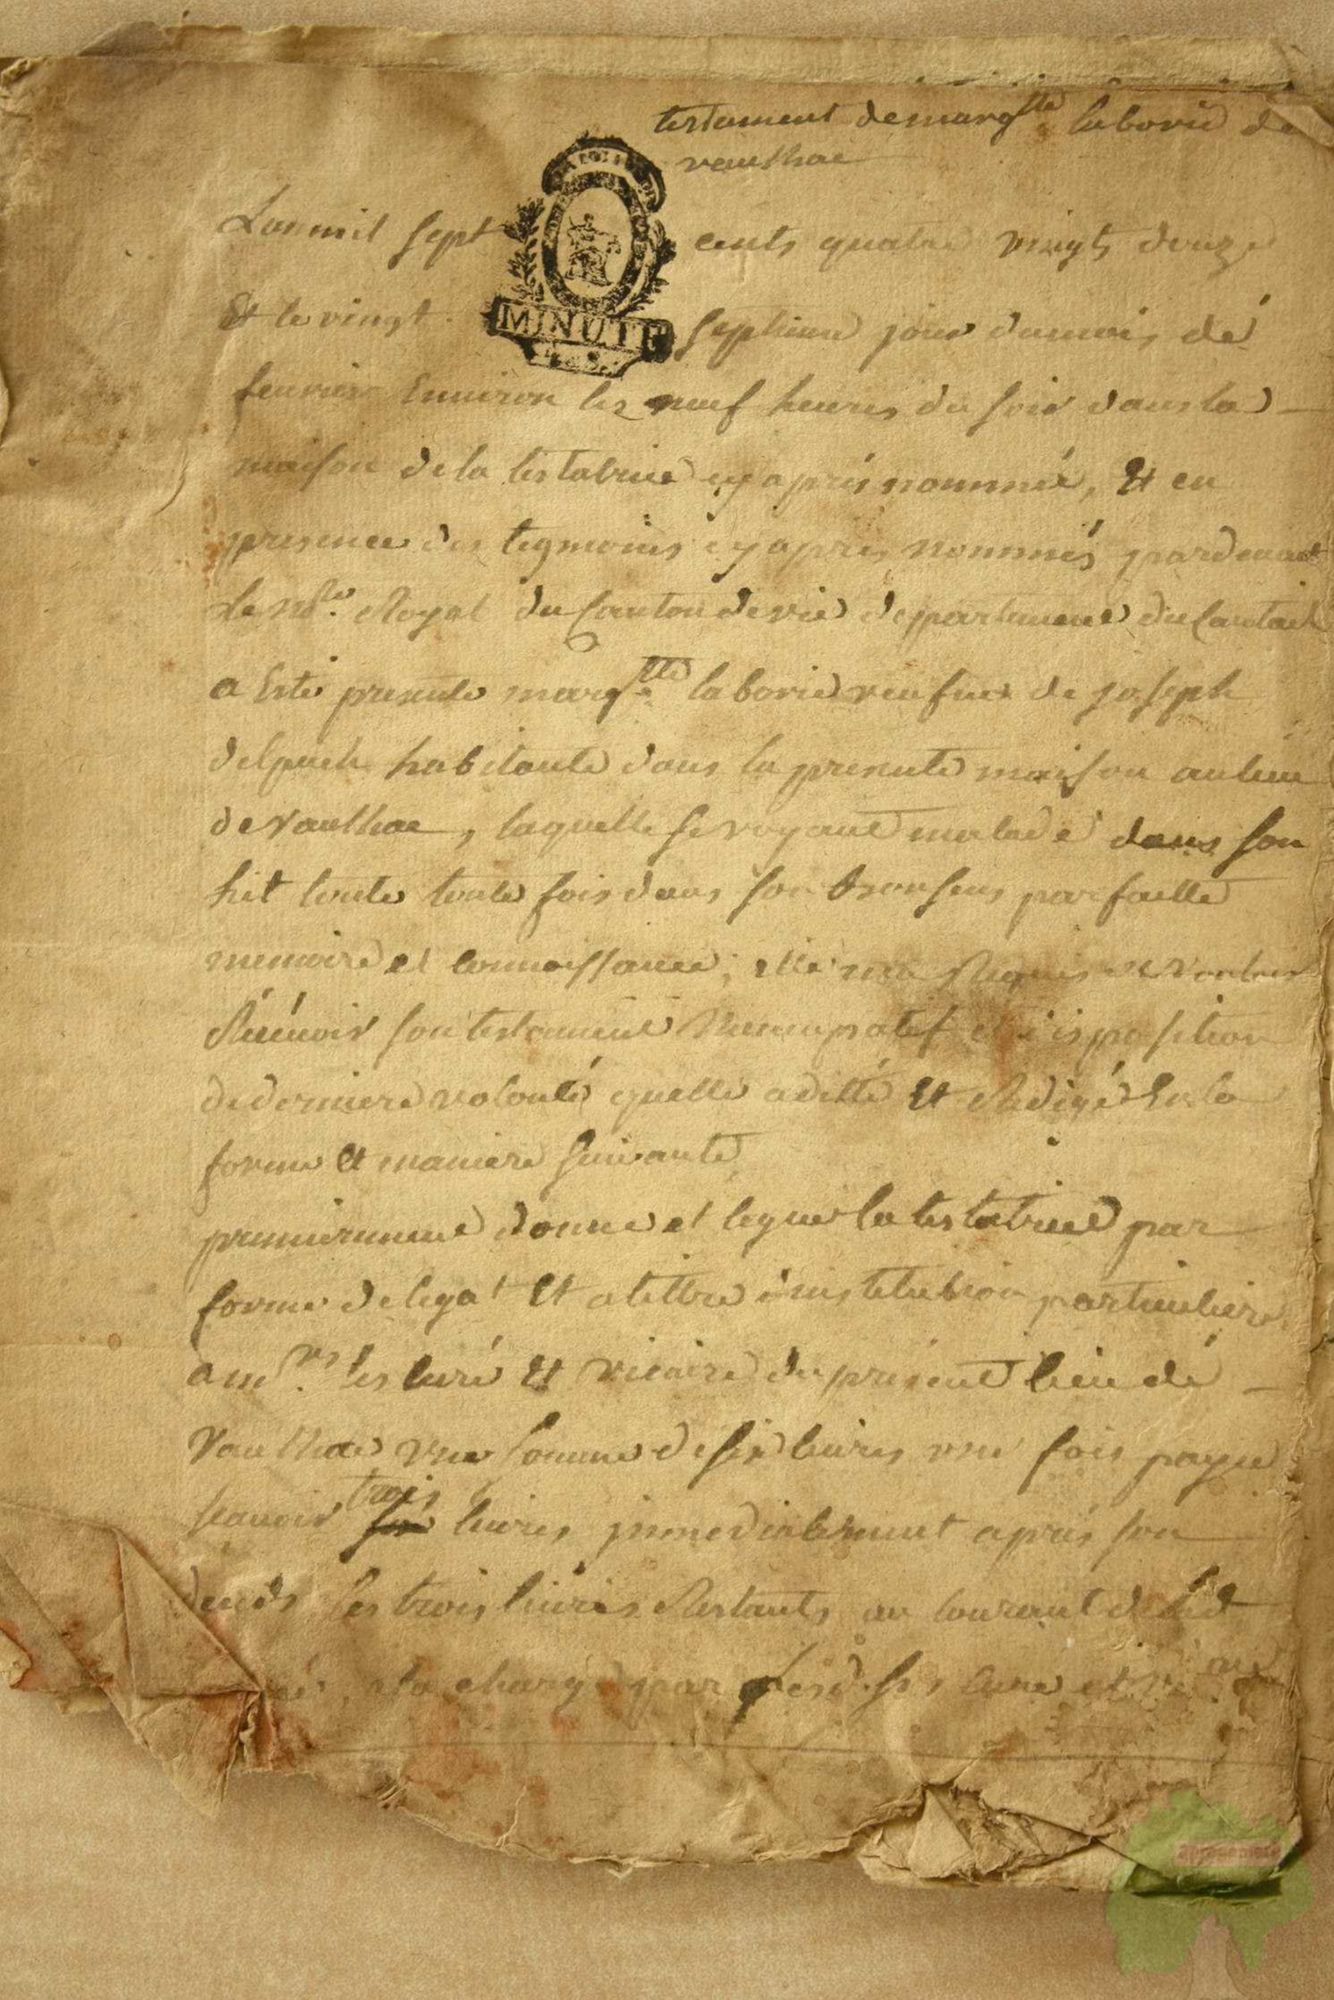 testament de marg^tte laborie de
vaulhac
Lan mil sept cents quatre vingts douze
Et le vingt septieme jour du mois dé
feuvrier Environ les neuf heures du soir dans la
maison de la testatrice cy aprés nommée, Et en
presence des tegmoins cy apres nommés pardevant
Le no^re. Royal du Canton de vic departement du Cantal
a Esté presente marg^tte laborie veufve de joseph
delpuech habitante dans la presente maison au lieu
de vaulhac, laquelle se voyant malade dans son
lit toute fois dans son bon sens parfaitte
memoire et connoissance, elle ma Requis de vouloir
Récévoir son testament Nuncupatif et disposition
de derniere volonté quelle a ditté Et Redigé En la
forme Et maniere suivante
premierement donne et legue la testatrice par
forme de legat Et a tittre dinstitution particuliere
a m^rs. les curé Et vicaire du présent lieu dé
Vaulhac une somme de six livres une fois payée
scavoir trois livres immediatement aprés son
decés, les trois livres Restants au courant de lad
a la charge par lesd. srs curé et
MINUTE
apresomeis